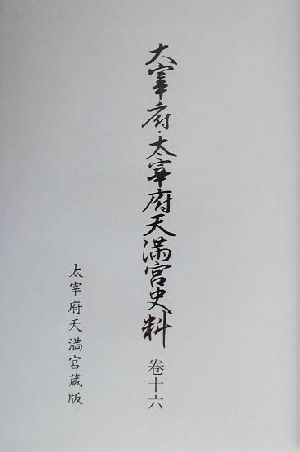 大宰府・太宰府天満宮史料
巻十六
太宰府天満宮蔵版